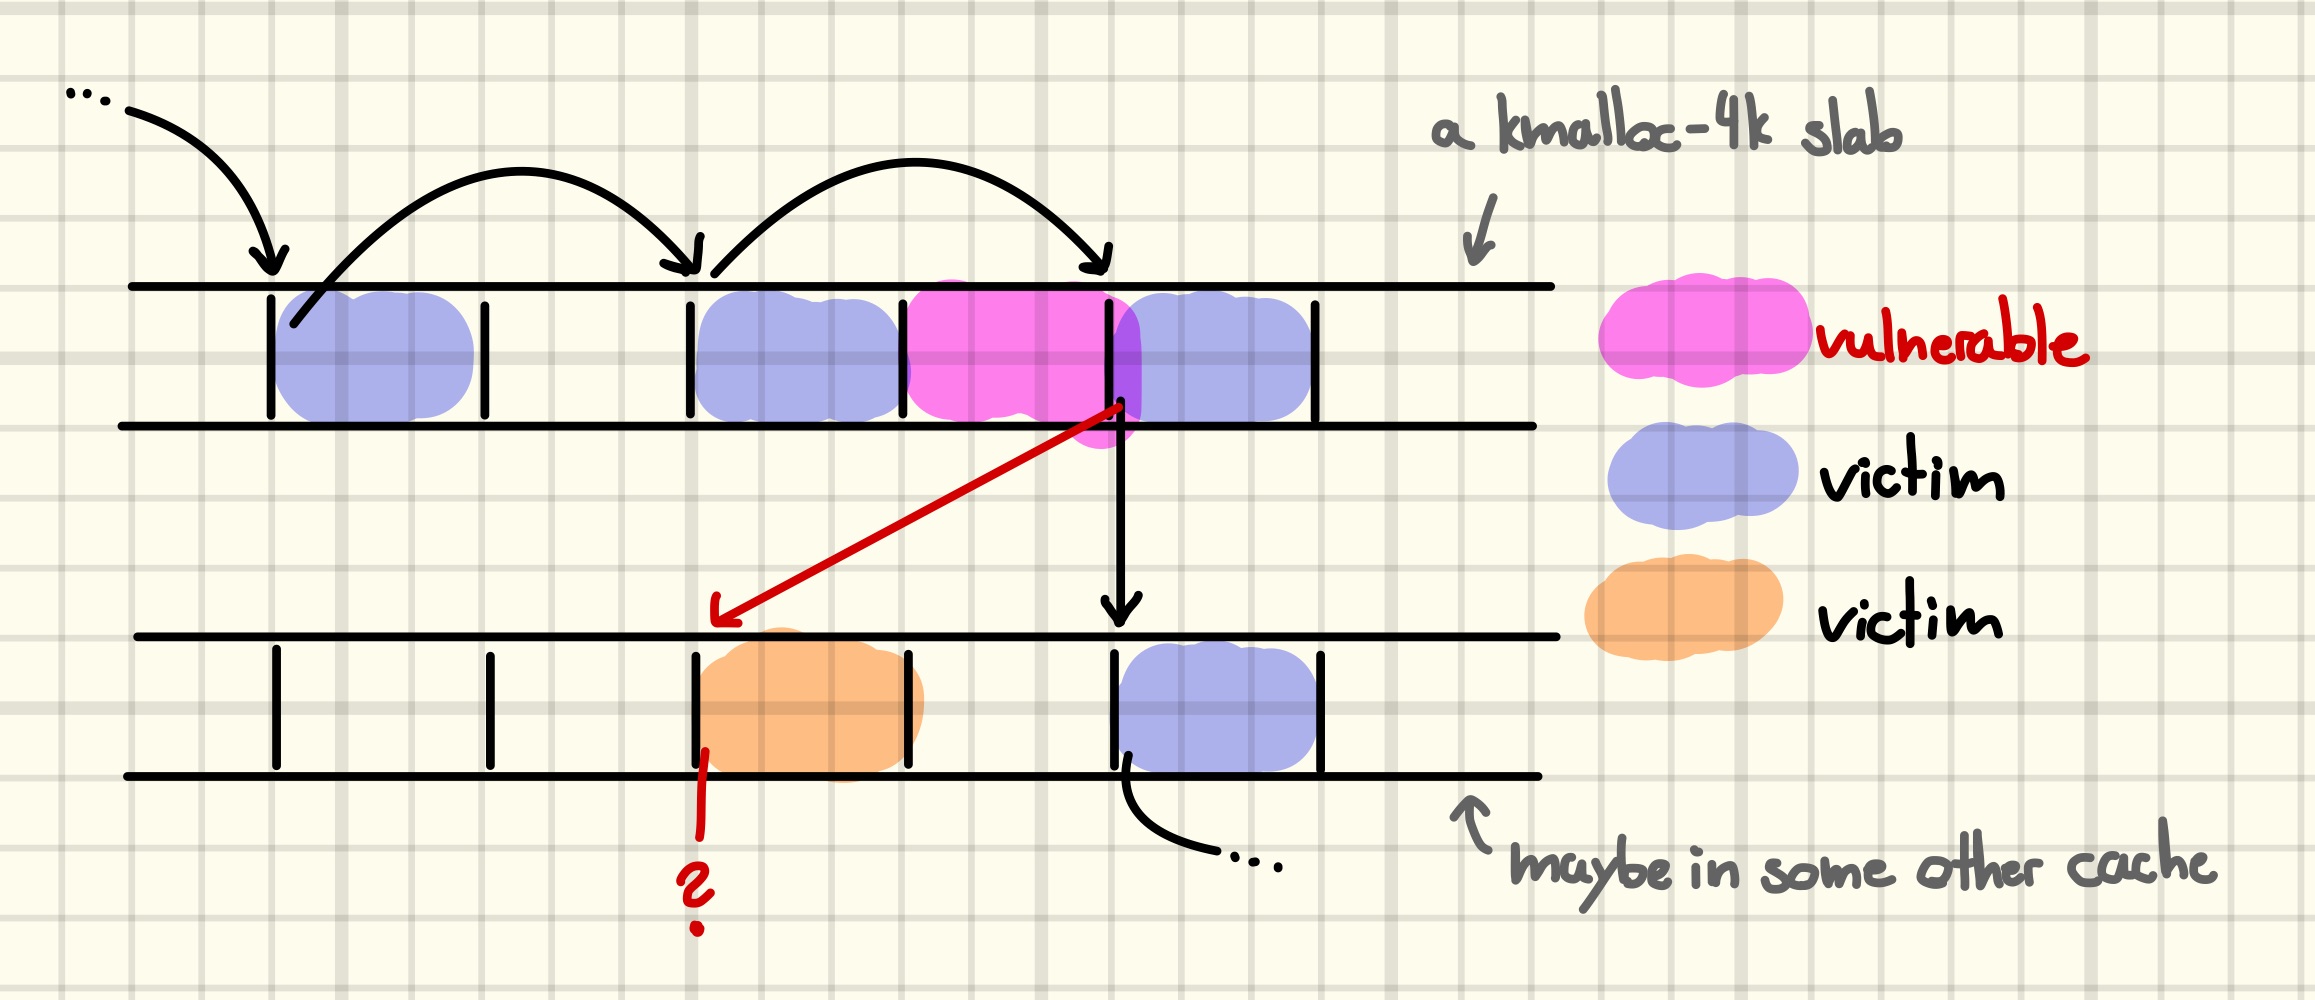 a kmalloc-4k slab
vulnerable
victim
victim
?
maybe in some other cache